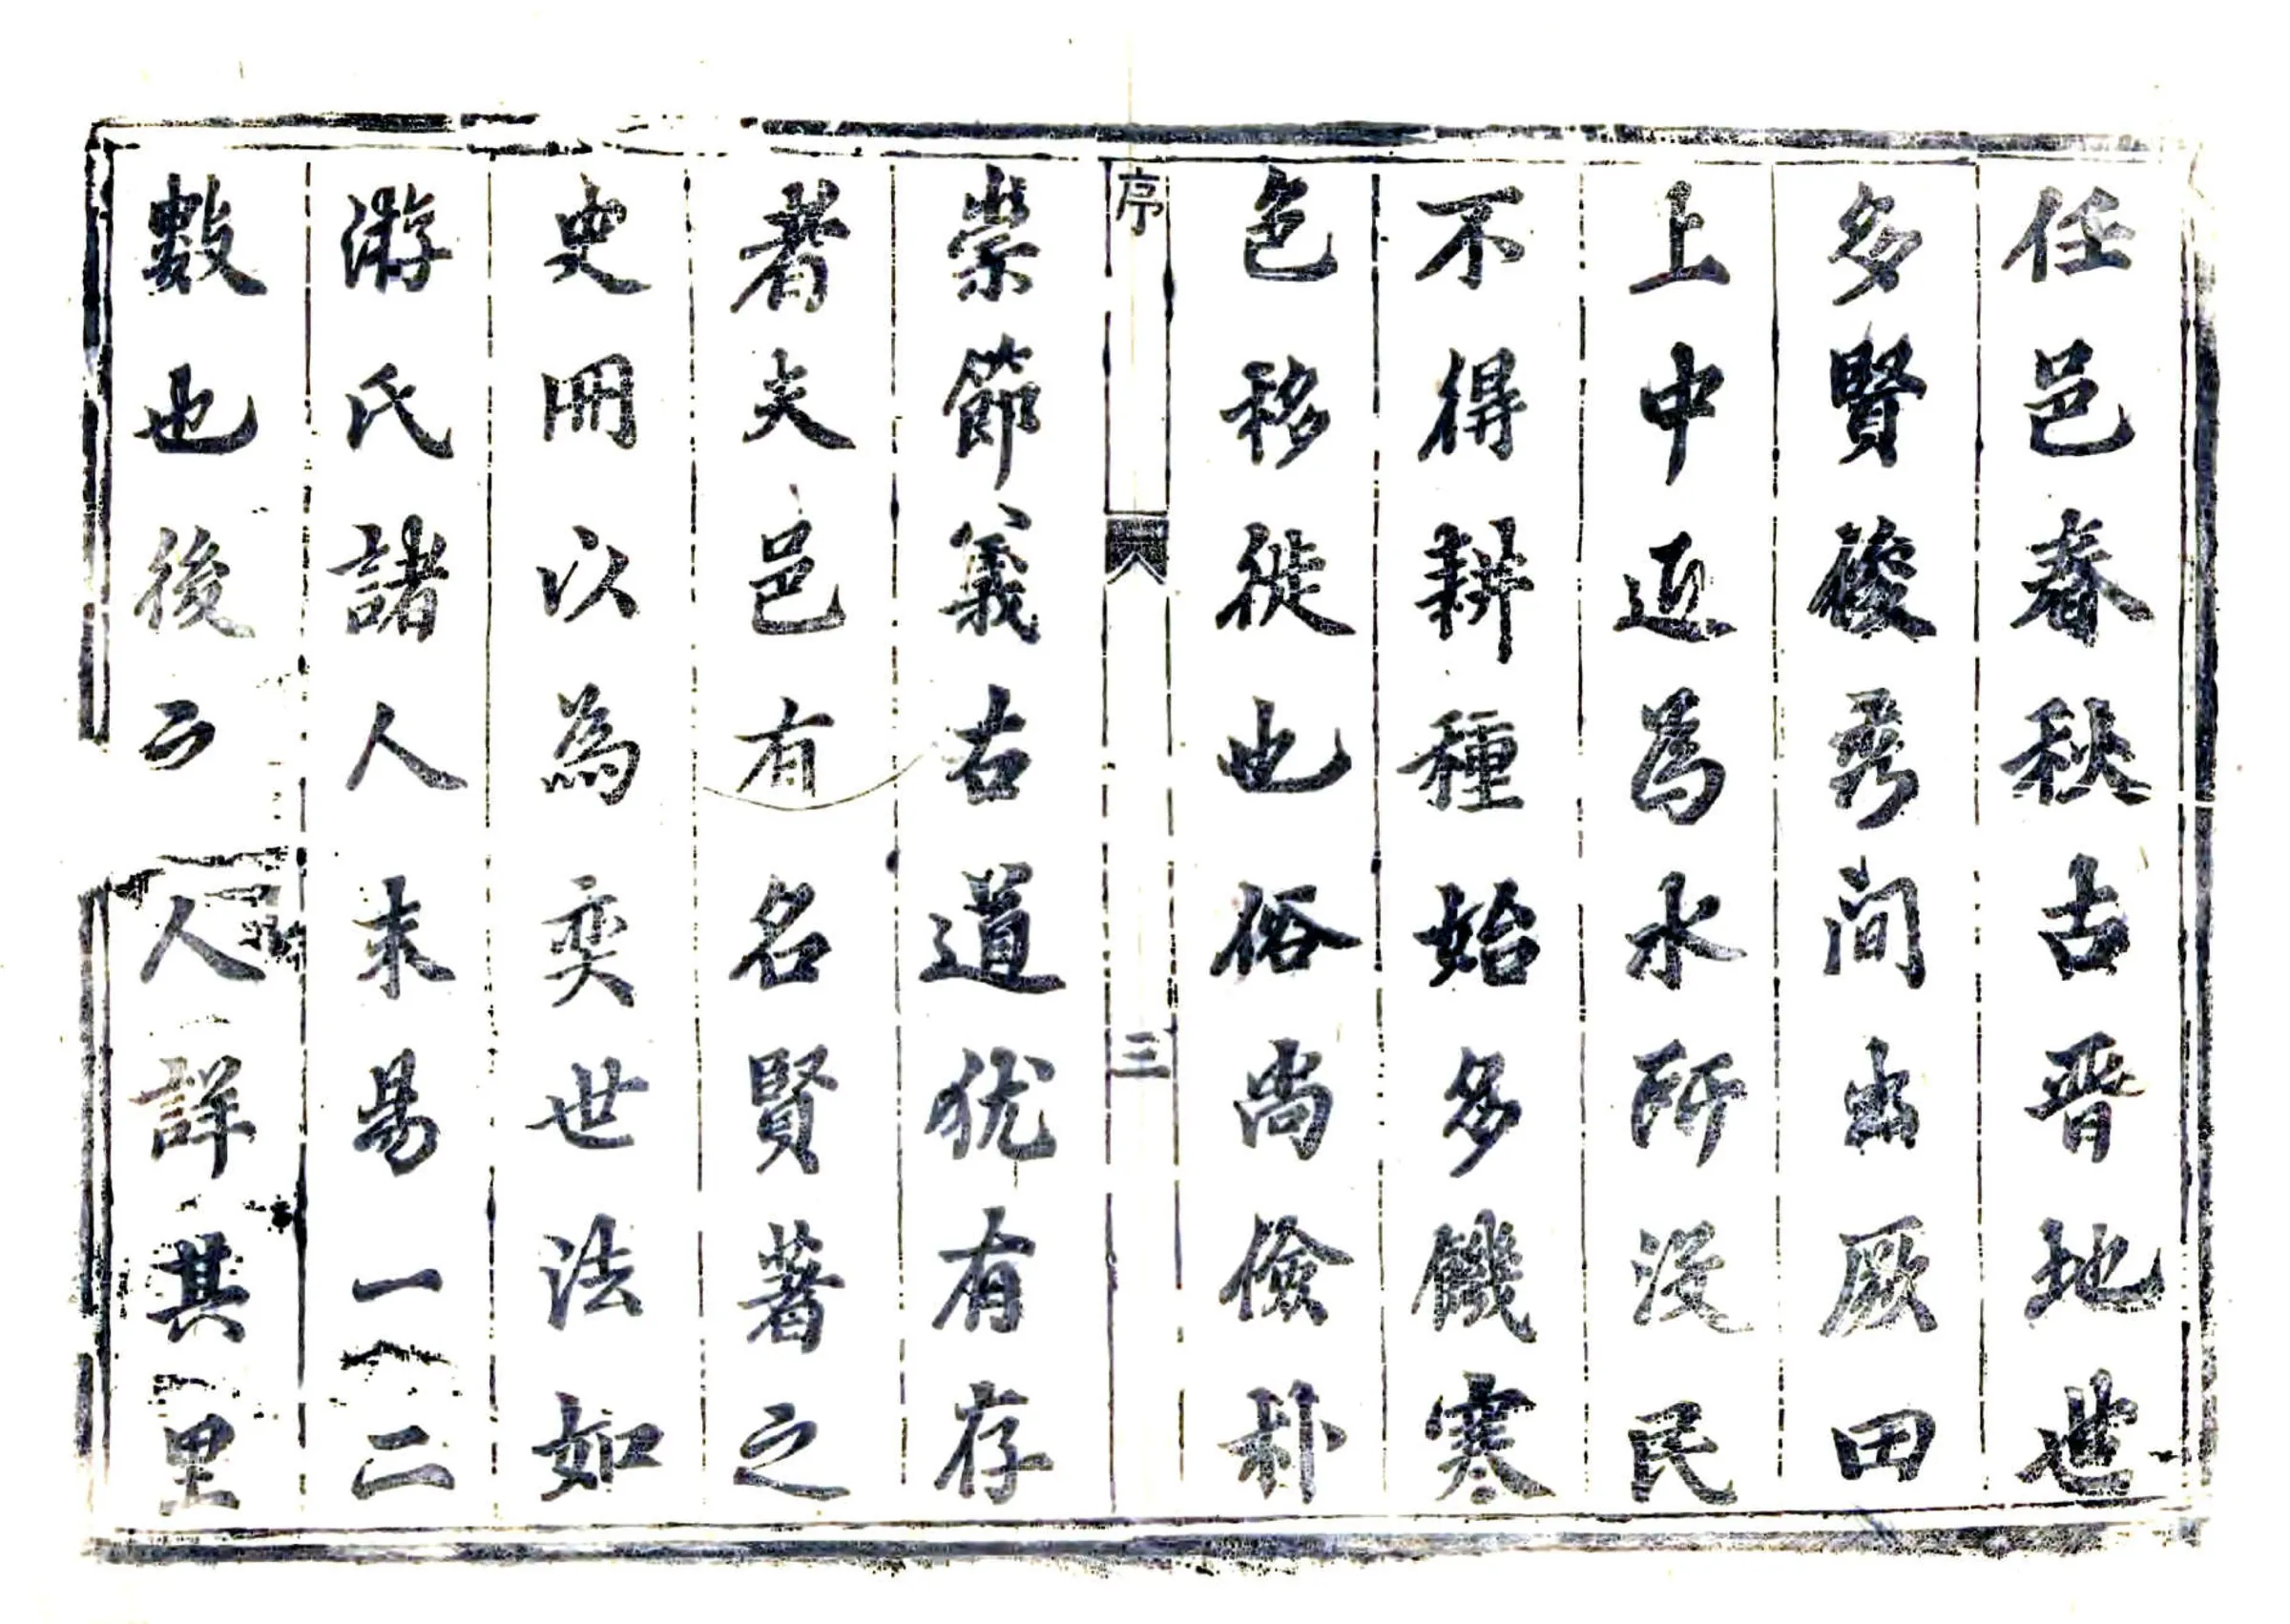 任邑春秋古晋地世
多賢俊秀间出厥田
上中迩為水所没民
不得耕種始多饑寒
色移徙也俗尚儉朴
序
三
崇節義古道犹有存
者夫邑有名賢著之
史冊以為奕世法如
游氏諸人未易一二
數也後之人詳其里